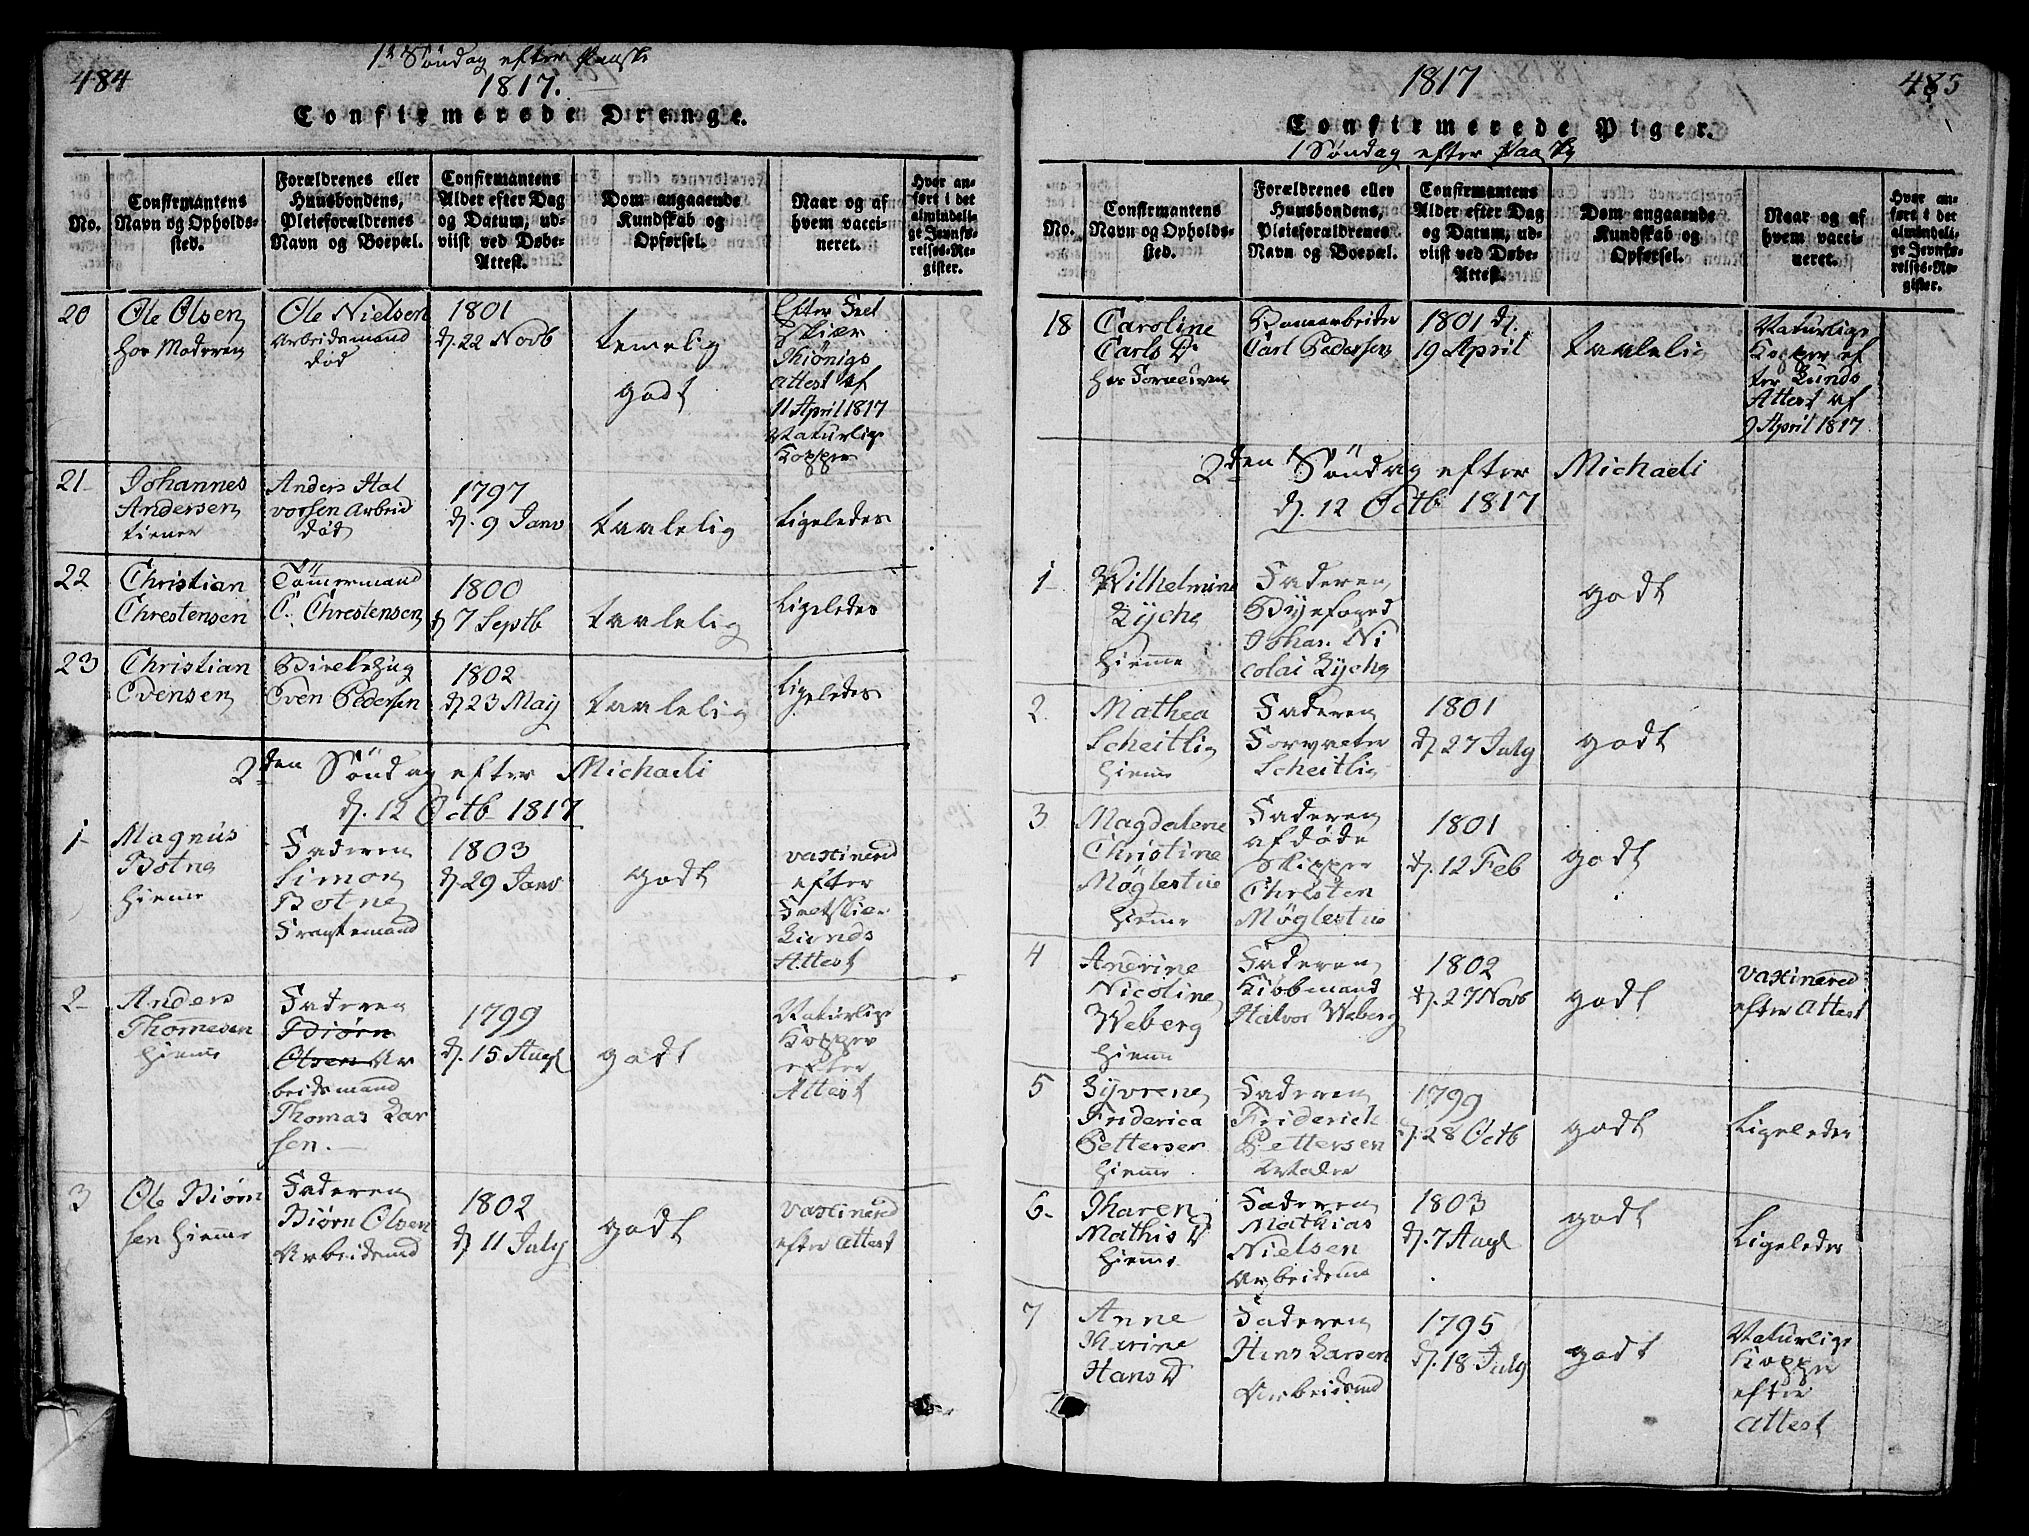 484
1ste Søndag efter Paaske
1817.
Confirmerede Drenge.
No.
Confirmantens
Navn og Opholds-
sted.
Forældrenes eller
Huusbondens,
Pleieforældrenes
Navn og Boepæl.
Confirmantens
Alder efter Dag
og Datum, ud-
viist ved Døbe-
Attest.
Dom angaaende
Kundskab og
Opførsel.
Naar og af
hvem vacci-
neret.
Hvor an-
ført i det
almindeli-
ge Jevnfø-
relses-Re-
gister.
20
Ole Olsen
hos Moderen
Ole Nielsen
Arbeidsmand
død
1801
d. 22 Novb
temelig
godt
Efter
attest af
11 April 1817
Naturlige
Kopper
21
Johannes
Andersen
tiener
Anders Hal
vorsen Arbeid
død
1797
d. 9 Janv
taalelig
Ligeledes
22
Christian
Chrestensen
Tømmermand
C. Chrestensen
1800
d 7 Septb
taalelig
Ligeledes
23
Christian
Evensen
Even Pedersen
1802
d. 23 May
taalelig
Ligeledes
2den Søndag efter Michaeli
d. 12 Octb 1817
1
Magnus
Botne
hiemme
Faderen
Simon
Botne
Fragtemand
1803
d. 29 Janv
godt
vaxinered
efter
Lunds
Attest
2
Anders
Thommesen
hiemme
Faderen
Biørn
Olsen Ar
beidsmand
Thomas Lar
sen.
1799
d. 15 Augs
godt
Naturlige
Kopper
efter
Attest
3
Ole Biørn
sen hiemme
Faderen
Biørn Olsen
Arbeidsmd
1802
d. 11 July
godt
vaxinered
efter Attest
1817
485
Confirmerede Piger.
1 Søndag efter Paaske
No.
Confirmantens
Navn og Opholds-
sted.
Forældrenes eller
Huusbondens,
Pleieforældrenes
Navn og Boepæl.
Confirmantens
Alder efter Dag
og Datum, ud-
viist ved Døbe-
Attest.
Dom angaaende
Kundskab og
Opførsel.
Naar og af
hvem vacci-
neret.
Hvor an-
ført i det
almindeli-
ge Jevnfø-
relses-Re-
gister.
18
Caroline
Carls D
hos Foreldrene
Carl Pedersen
1801 d.
19 April
taalelig
Naturlige
Kopper ef
ter Lunds
Attest af
9 April 1817
2den Søndag efter Michaeli
d. 12 Octb 1817
1
Wilhelmine
Lyche
hiemme
Faderen
Byefoged
Johan Ni
colai Lyche
godt
2
Mathea
Scheitlie
hiemme
Faderen
Forvalter
Scheitlie
1801
d. 27 July
godt
3
Magdalene
Christine
Møglestue
hiemme
Faderen
afdøde
Skipper
Christen
Møglestue
1801
d. 12 Feb
godt
4
Andrine
Nicoline
Weberg
hiemme
Faderen
Kiøbmand
Halvor Weberg
1802
d. 27 Novb
godt
vaxinered
efter Attest
5
Syvrene
Friderica
Pettersen
hiemme
Faderen
Friderich
Pettersen
1799
d. 28 Octb
godt
Ligeledes
6
Maren
Mathis D
hiemme
Faderen
Mathias
Nielsen
Arbeidsm
1803
d. 7 Augs
godt
Ligeledes
7
Anne
Marine
Hans D
Faderen
Hans Larsen
Arbeidsmd
1795
d. 18 July
godt
Naturlige
Kopper
efter
Attest